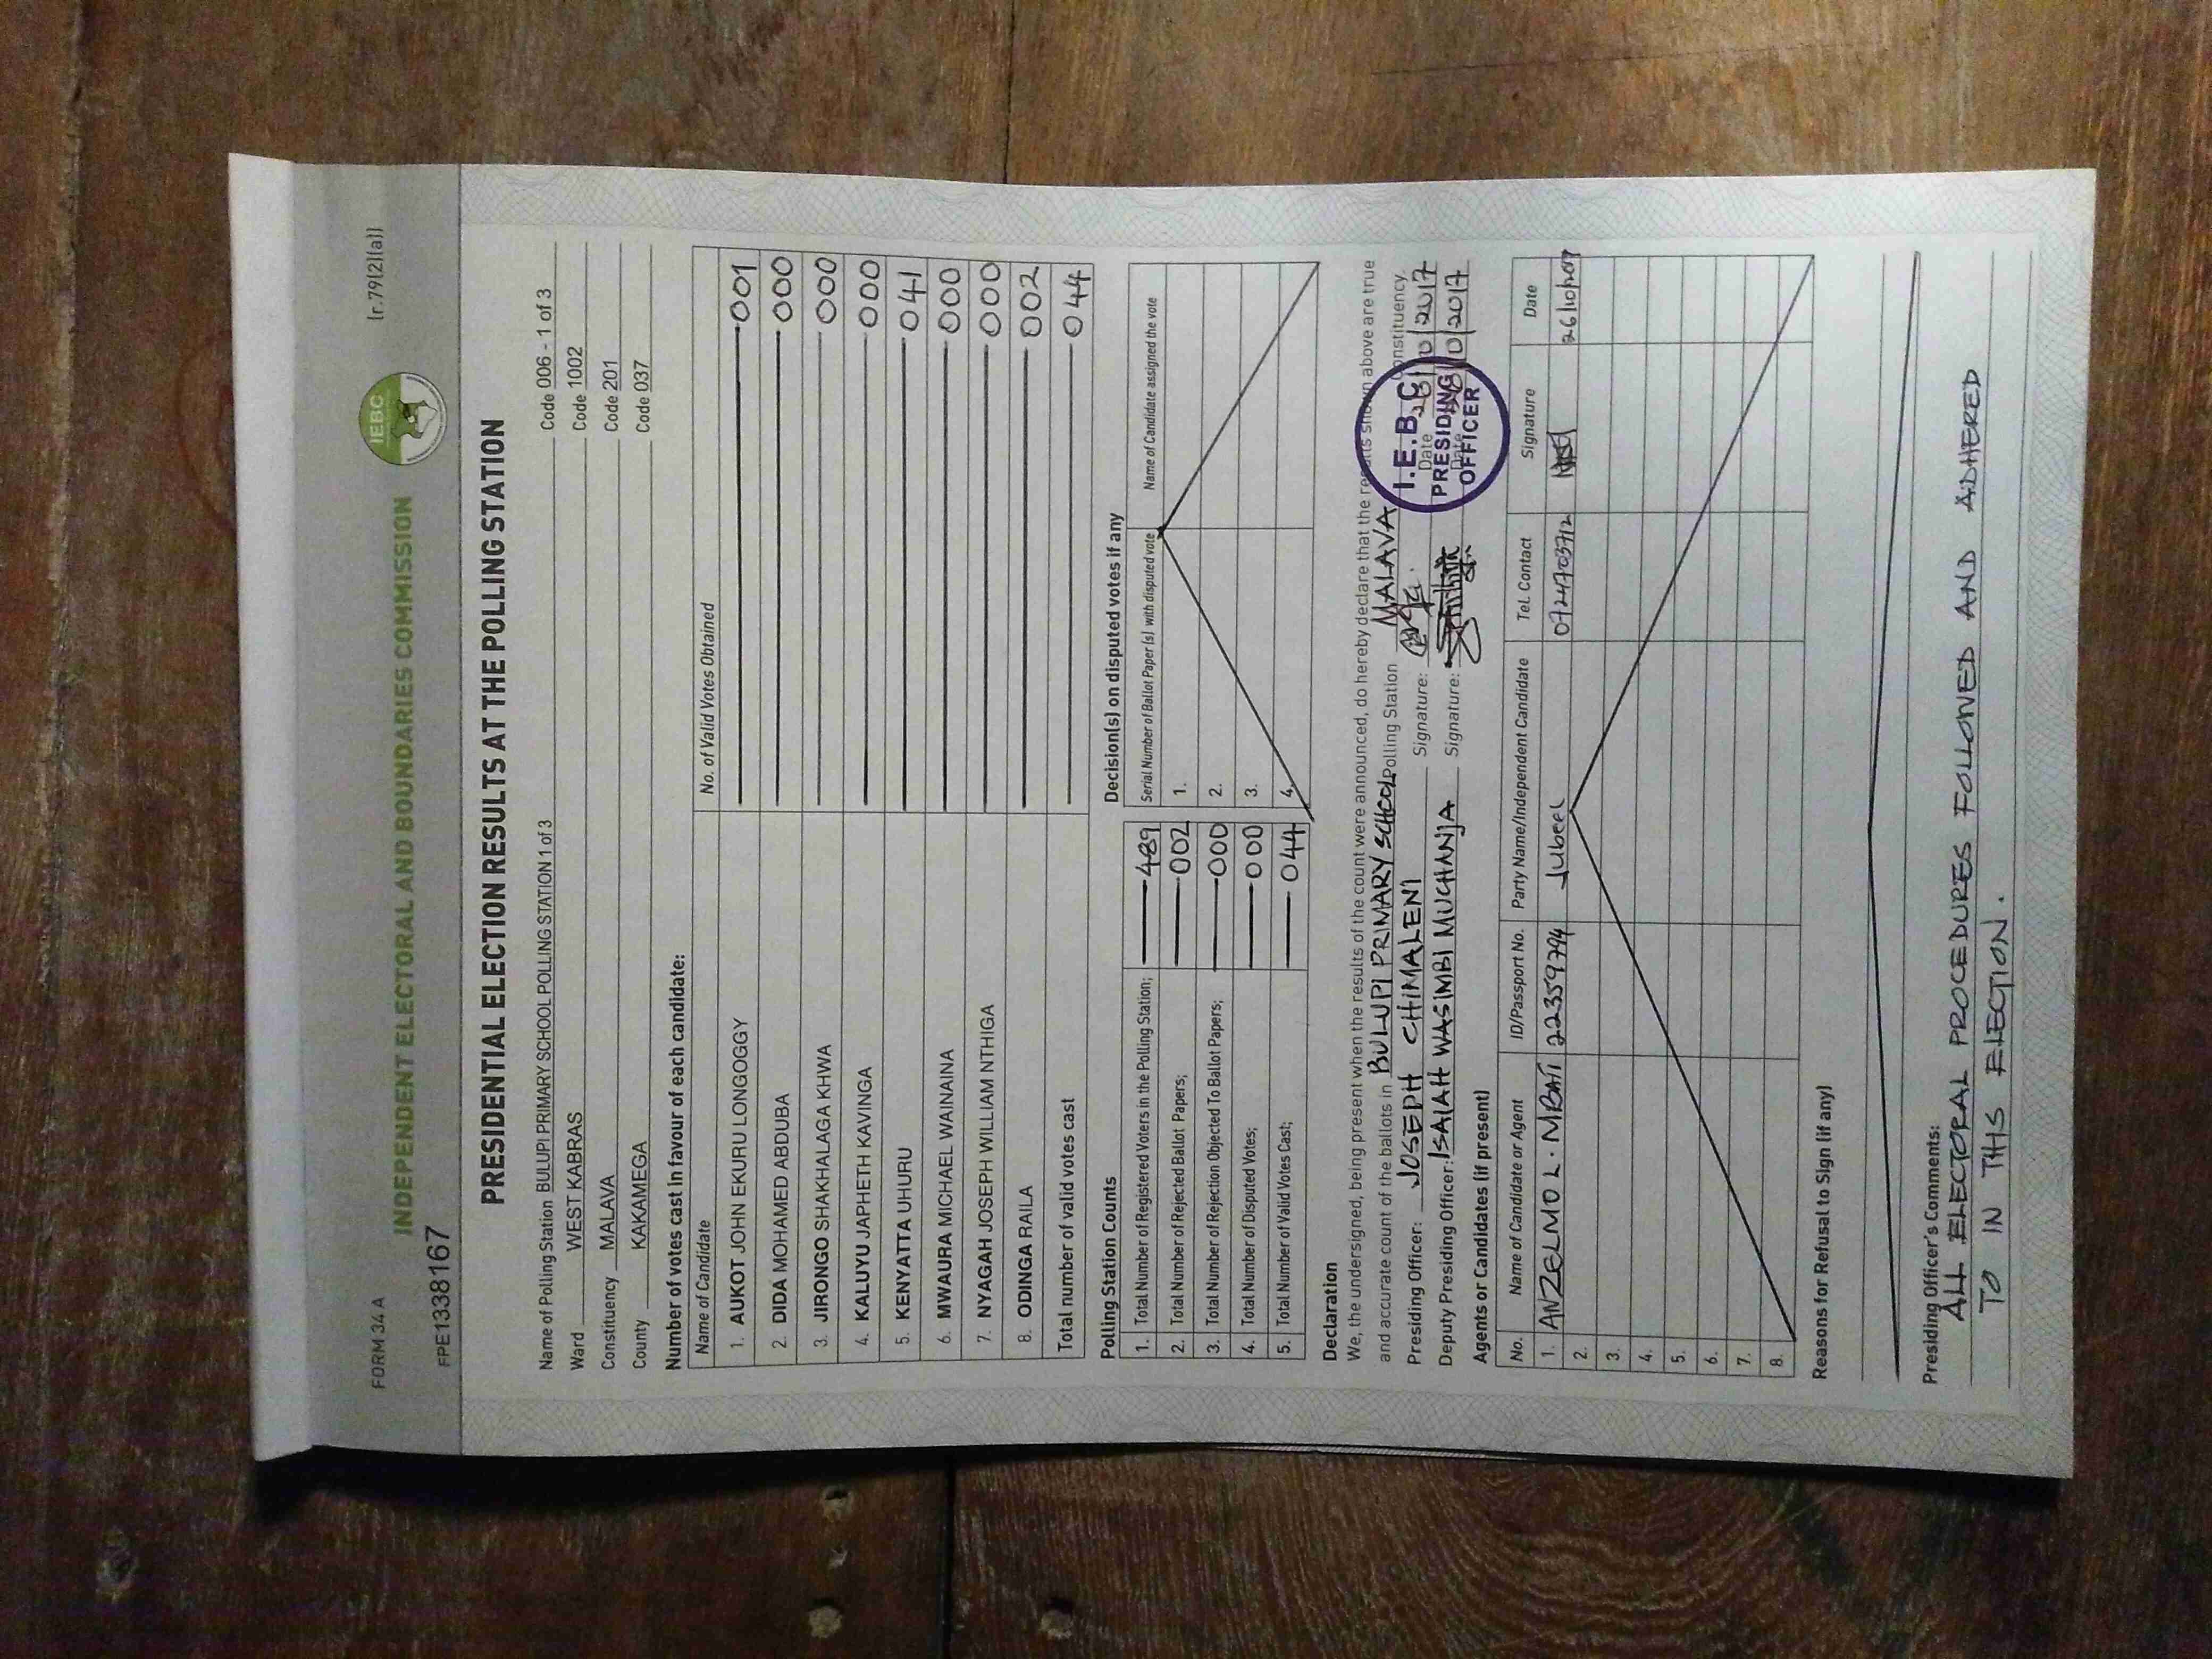 FORM 34 A (r.79(2)(a))
INDEPENDENT ELECTORAL AND BOUNDARIES COMMISSION
IEBC
FPE1338167
PRESIDENTIAL ELECTION RESULTS AT THE POLLING STATION
Name of Polling Station BULUPI PRIMARY SCHOOL POLLING STATION 1 of 3 Code 006 - 1 of 3
Ward WEST KABRAS Code 1002
Constituency MALAVA Code 201
County KAKAMEGA Code 037
Number of votes cast in favour of each candidate:
Name of Candidate No. of Valid Votes Obtained
1. AUKOT JOHN EKURU LONGOGGY 001
2. DIDA MOHAMED ABDUBA 000
3. JIRONGO SHAKHALAGA KHWA 000
4. KALUYU JAPHETH KAVINGA 000
5. KENYATTA UHURU 041
6. MWAURA MICHAEL WAINAINA 000
7. NYAGAH JOSEPH WILLIAM NTHIGA 000
8. ODINGA RAILA 002
Total number of valid votes cast 044
Polling Station Counts
1. Total Number of Registered Voters in the Polling Station; 489
2. Total Number of Rejected Ballot Papers; 002
3. Total Number of Rejection Objected To Ballot Papers; 000
4. Total Number of Disputed Votes; 000
5. Total Number of Valid Votes Cast; 044
Decision(s) on disputed votes if any
Serial Number of Ballot Paper (s) with disputed vote Name of Candidate assigned the vote
1.
2.
3.
4.
Declaration
We, the undersigned, being present when the results of the count were announced, do hereby declare that the results shown above are true
and accurate count of the ballots in BULUPI PRIMARY SCHOOL Polling Station MALAVA Constituency.
Presiding Officer: JOSEPH CHIMALENI Signature: Date 26/10/2017
Deputy Presiding Officer: ISAIAH WASIMBI MUCHANJA Signature: Date 26/10/2017
I.E.B.C
PRESIDING
OFFICER
Agents or Candidates (if present)
No. Name of Candidate or Agent ID/Passport No. Party Name/Independent Candidate Tel. Contact Signature Date
1. ANZELMO L. MBATI 22359794 Jubeel 0724703712 26/10/2017
2.
3.
4.
5.
6.
7.
8.
Reasons for Refusal to Sign (if any)
Presiding Officer's Comments:
ALL ELECTORAL PROCEDURES FOLLOWED AND ADHERED
TO IN THIS ELECTION.